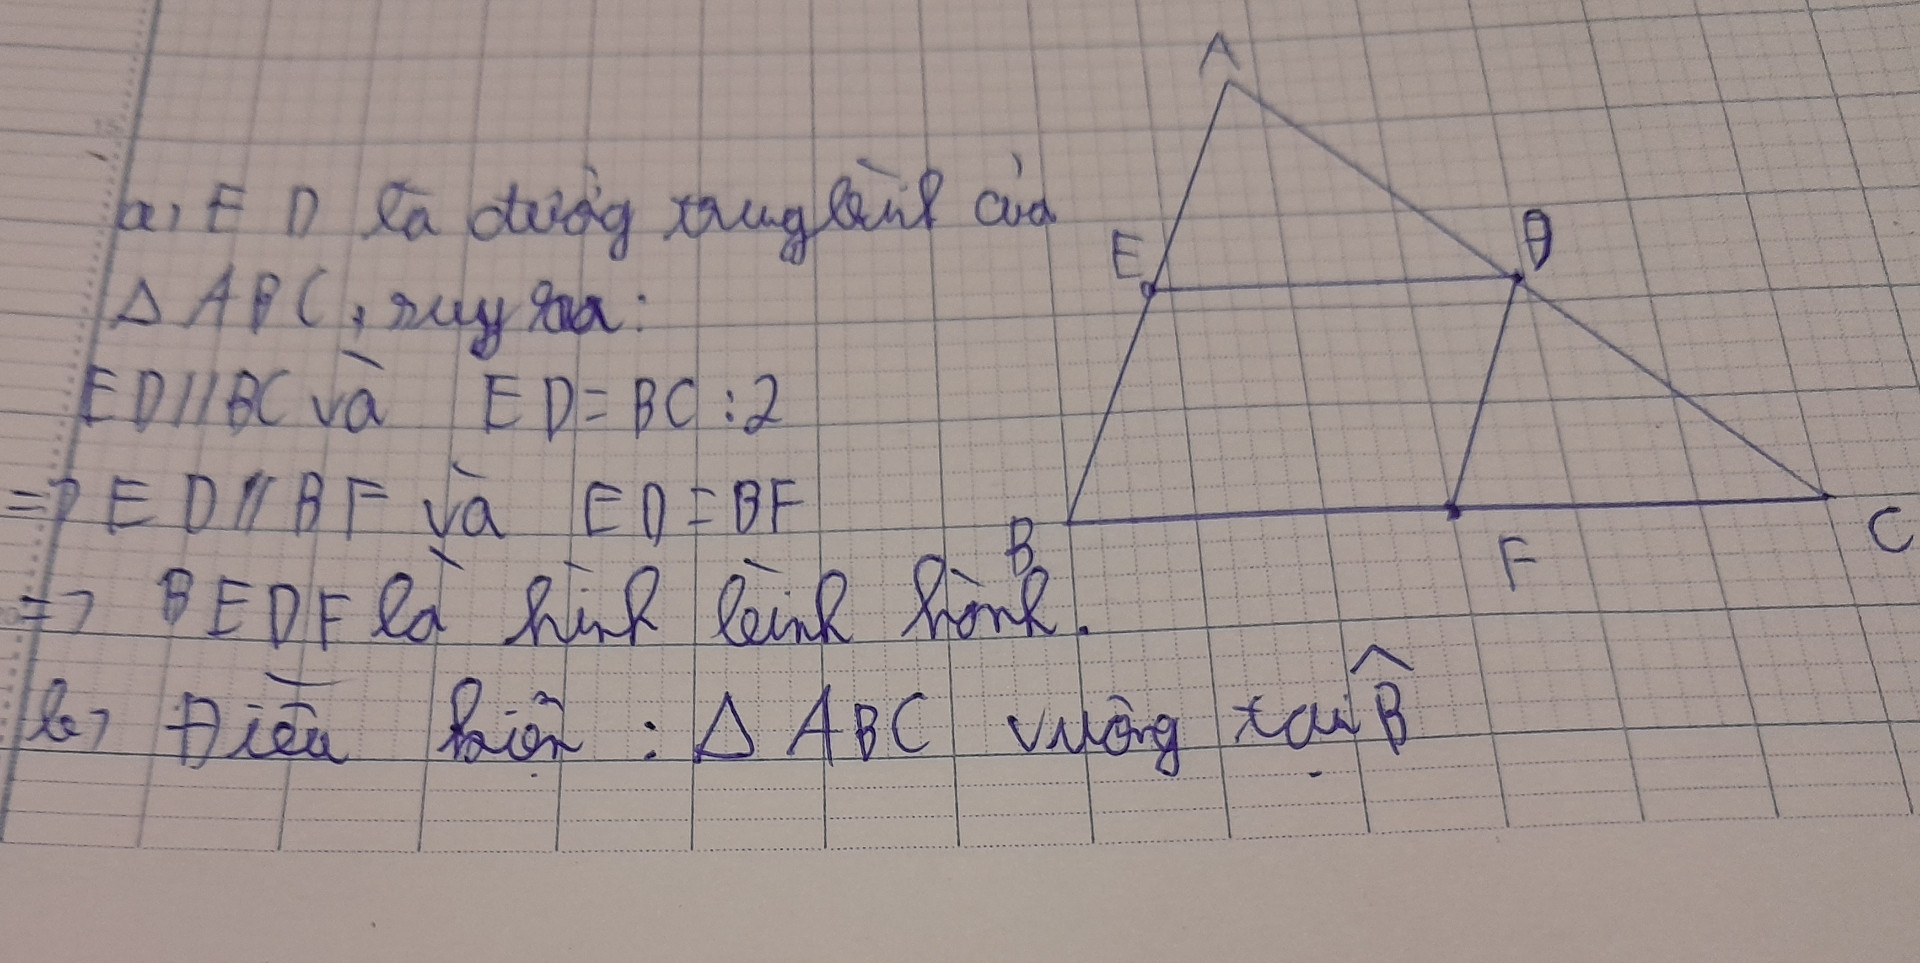 a, ED là đường trung bình của
Δ ABC, suy ra:
ED//BC và ED=BC:2
=> ED//BF và ED=BF
=> BEDF là hình bình hành.
b, Điều kiện: Δ ABC vuông tại B̂
A
E
D
B
F
C